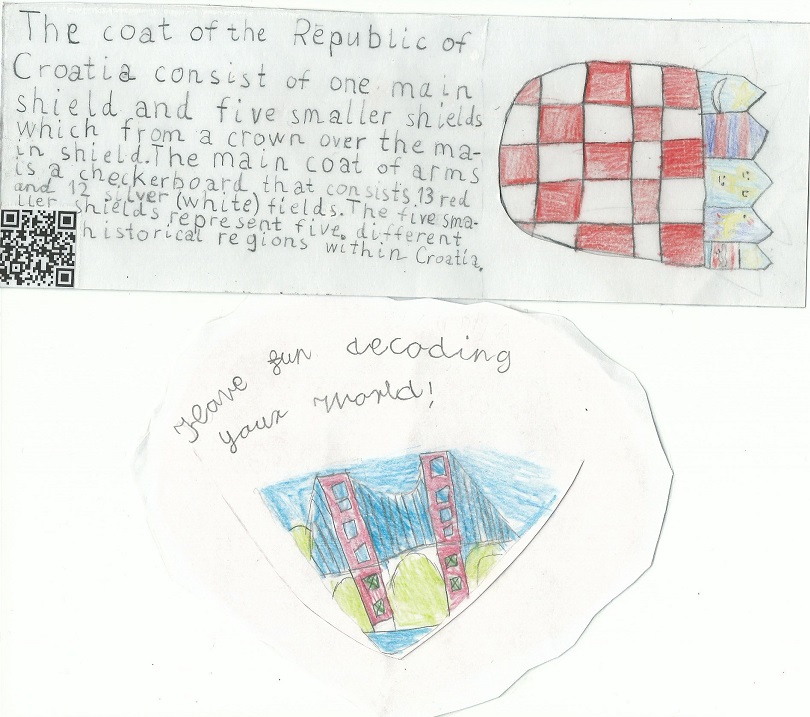 The coat of the Republic of
Croatia consist of one main
shield and five smaller shields
which from a crown over the ma-
in shield.The main coat of arms
is a checkerboard that consists 13 red
and 12 silver (white) fields.The five sma-
ller shields represent five, different
historical regions within Croatia.
Have fun decoding
your World!